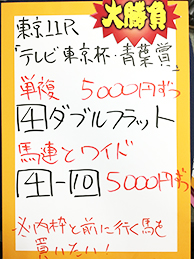 大勝負
東京11R
「テレビ東京杯・青葉賞」
単複 5000円ずつ
4ダブルフラット
馬連とワイド
4-10 5000円ずつ
※内枠と前に行く馬を
買いたい!